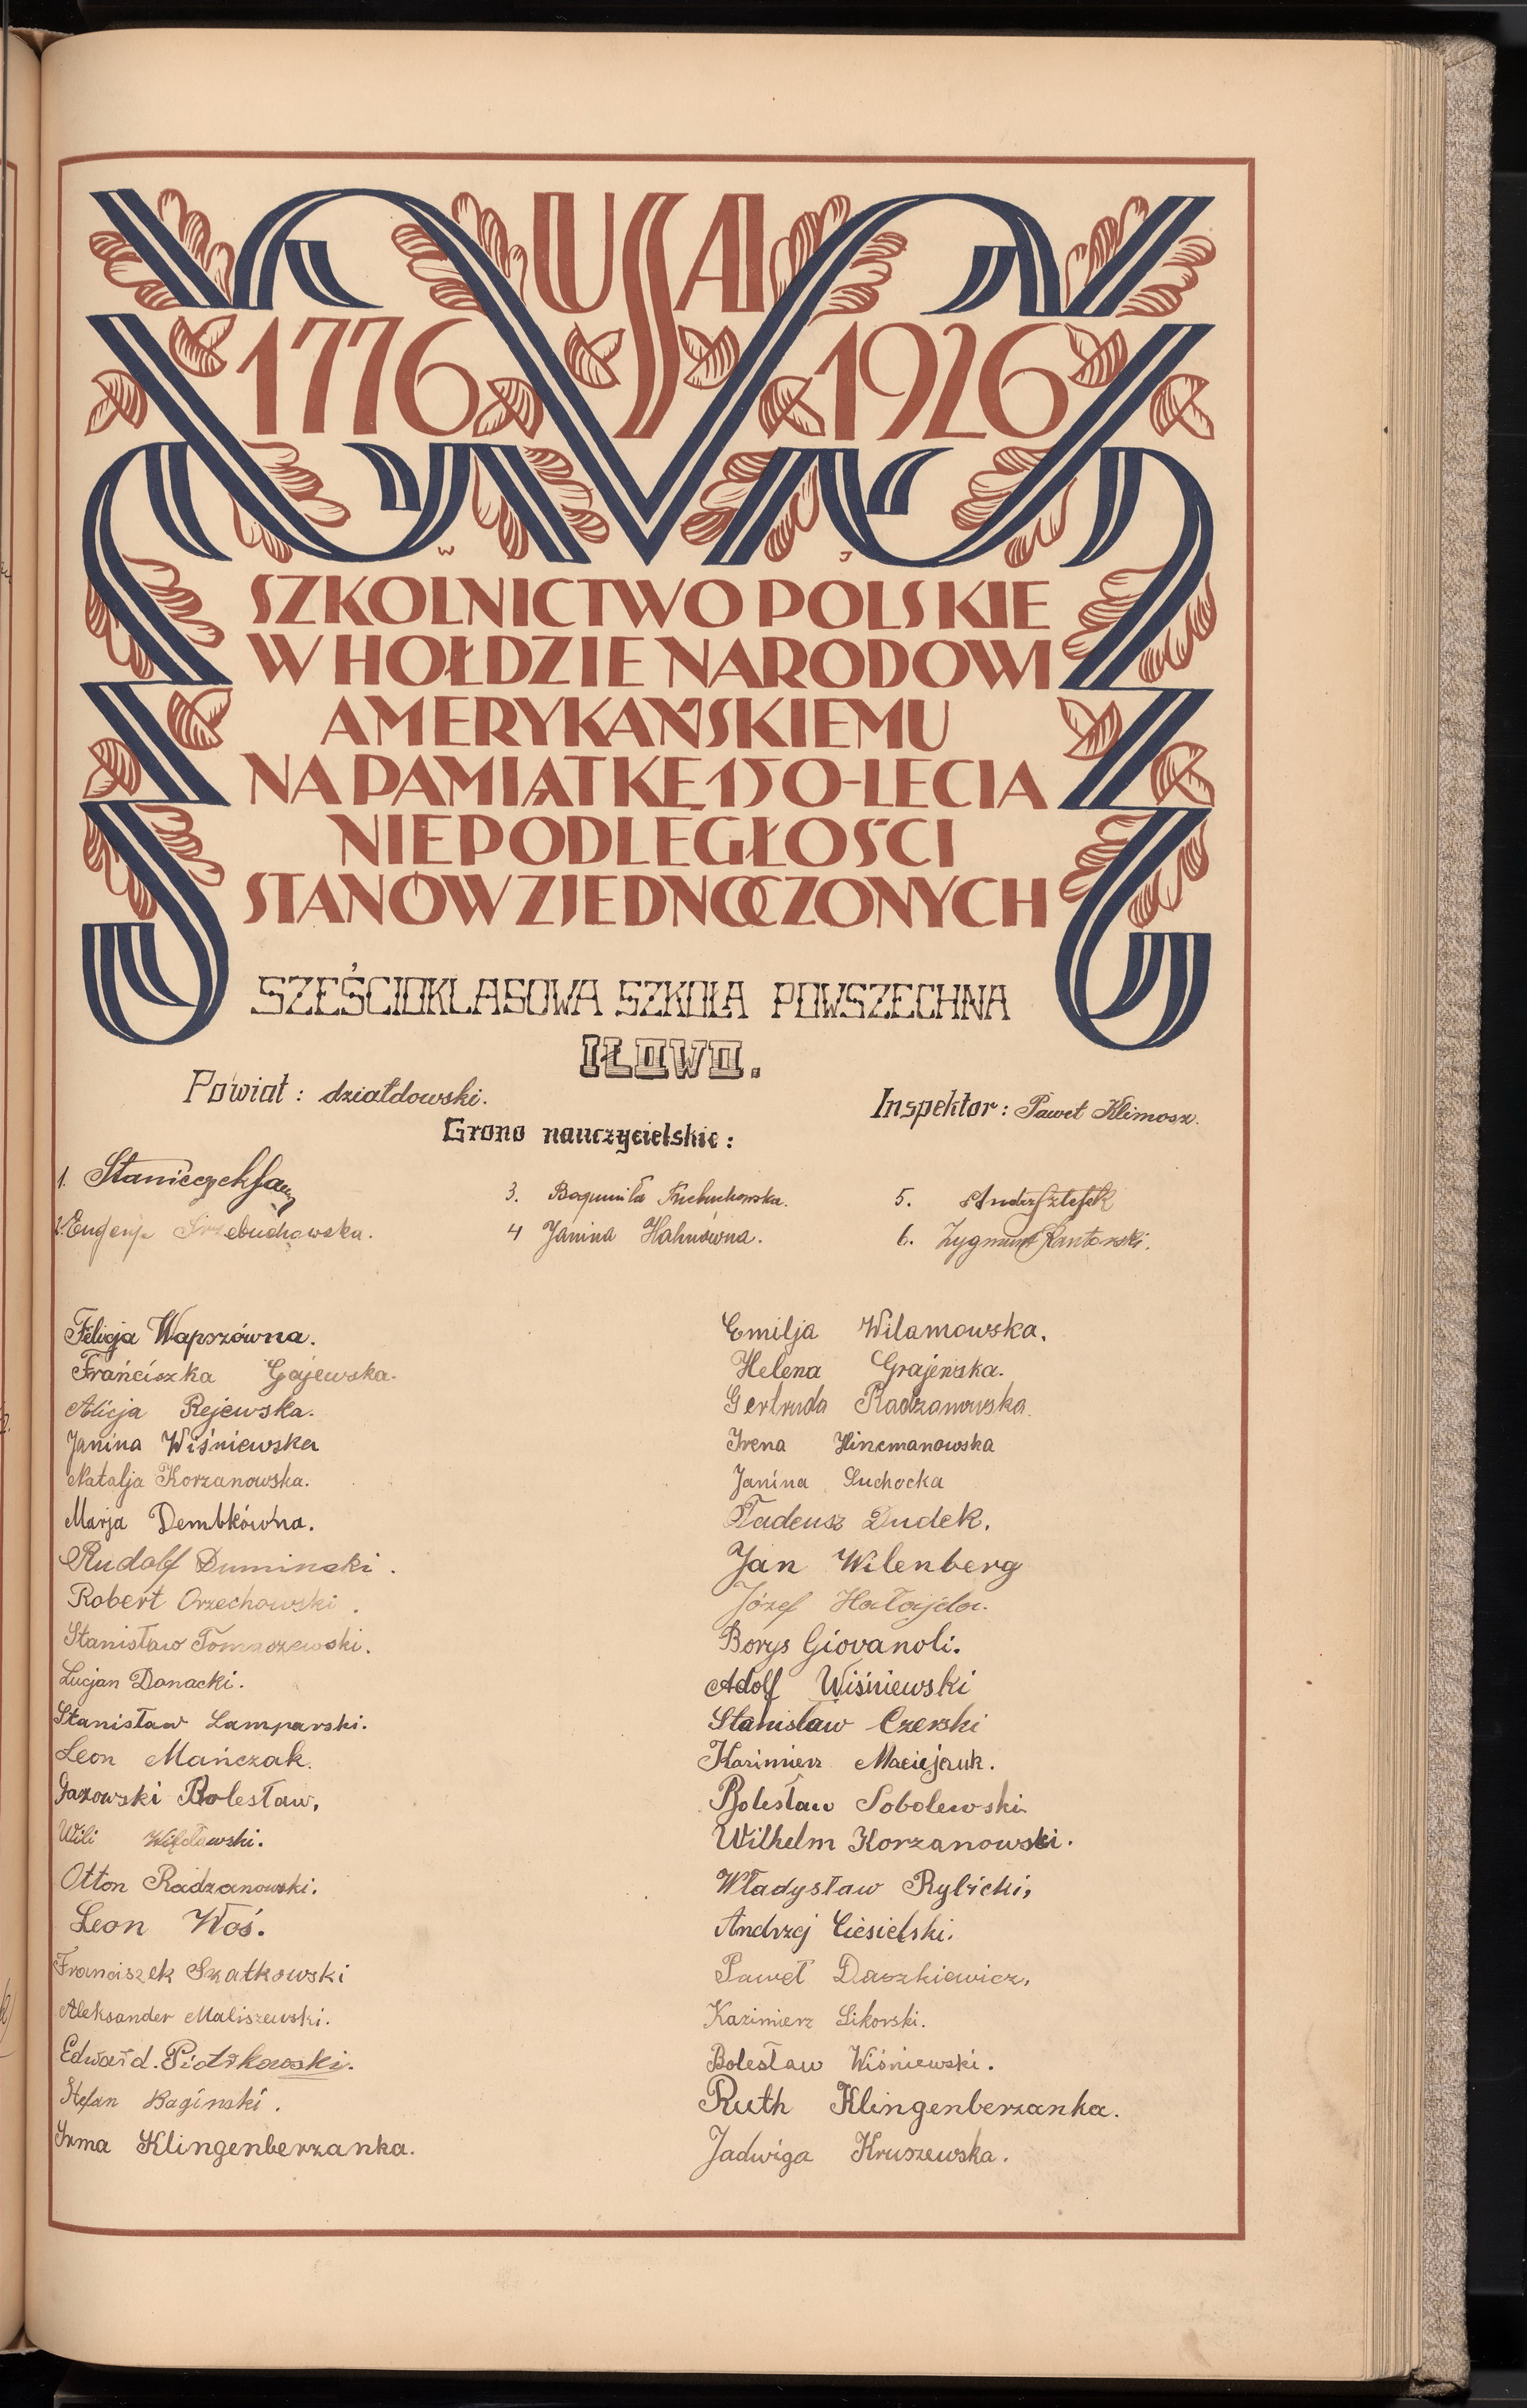 USA
1776 1926
W J
SZKOLNICTWO POLSKIE
W HOŁDZIE NARODOWI
AMERYKAŃSKIEMU
NA PAMIĄTKĘ 150-LECIA
NIEPODLEGŁOŚCI
STANÓW ZJEDNOCZONYCH
SZEŚCIOKLASOWA SZKOŁA POWSZECHNA
IŁOWO.
Powiat: działdowski.
Inspektor: Paweł Klimosz.
Grono nauczycielskie:
1.
2. Eugenja Trzebuchowska.
3. Bogumiła Trzebuchowska.
4 Janina Hahnówna.
5.
6. Zygmunt Kantorski.
Felicja Wapszówna.
Franciszka Gajewska.
Alicja Rejewska.
Janina Wiśniewska
Natalja Korzanowska.
Marja Dembkówna.
Rudolf Duminski.
Robert Orzechowski.
Stanisław Tomaszewski.
Lucjan Danacki.
Stanisław Lamparski.
Leon Mańczak.
Gazowski Bolesław,
Wili
Otton Radzanowski.
Leon Woś.
Franciszek Szatkowski
Aleksander Maliszewski.
Edward. Piotrkowski.
Stefan Baginski.
Irma Klingenberzanka.
Emilja Wilamowska.
Helena Grajewska.
Gertruda Radzanowska.
Irena Hincmanowska
Janina Suchocka
Tadeusz Dudek.
Jan Wilenberg
Józef Hałajda.
Borys Giovanoli.
Adolf Wiśniewski
Stanisław Czerski
Kazimierz Maciejauk.
Bolesław Sobolewski
Wilhelm Korzanowski.
Władysław Rybicki,
Andrzej Ciesielski.
Paweł Daszkiewicz,
Kazimierz Sikorski.
Bolesław Wiśniewski.
Ruth Klingenberzanka.
Jadwiga Kruszewska.